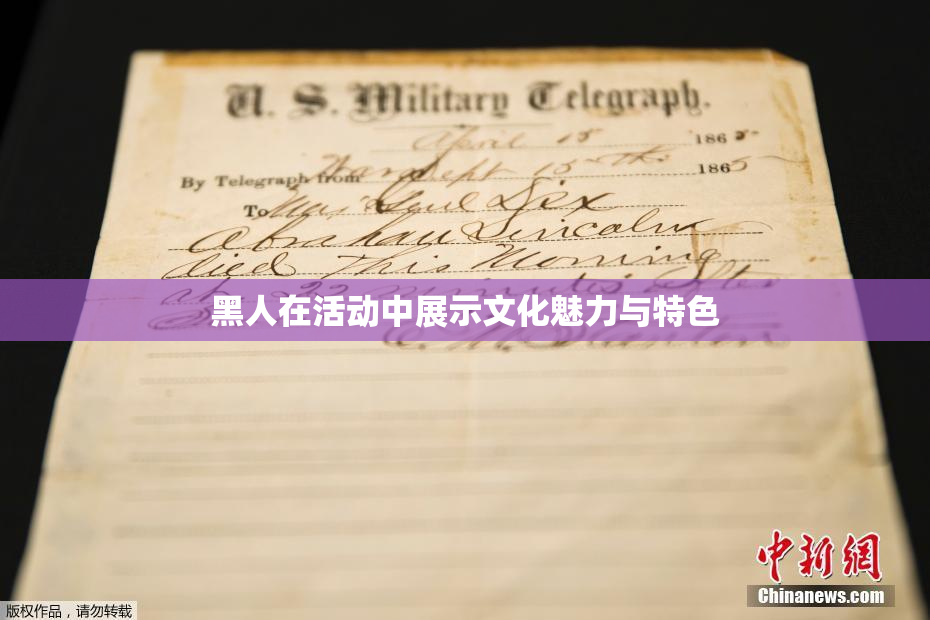 U. S. Military Telegraph.
April 15 1865
By Telegraph from War Dept 15th 1865
To Maj Genl Dix
Abraham Lincoln
died This Morning
at 22 minutes after
黑人在活动中展示文化魅力与特色
E. M. Stanton
中新網
Chinanews.com
版权作品，请勿转载